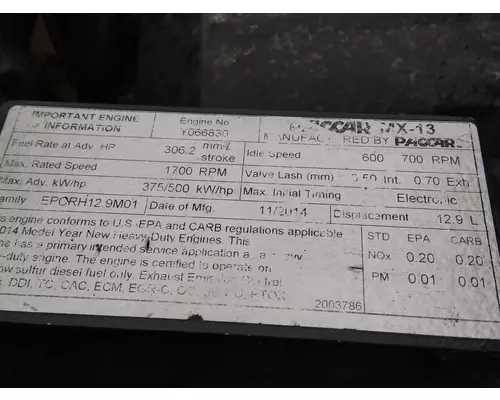 IMPORTANT ENGINE INFORMATION
Engine No Y066830
PACCAR MX-13
MANUFACTURED BY PACCAR
Fuel Rate at Adv. HP 306.2 mm³/stroke
Idle Speed 600 700 RPM
Max. Rated Speed 1700 RPM
Valve Lash (mm) 0.50 Int. 0.70 Exh
Max. Adv. kW/hp 375/500 kW/hp
Max. Initial Timing Electronic
Family EPCRH12.9M01
Date of Mfg. 11/2014
Displacement 12.9 L
s engine conforms to U.S. EPA and CARB regulations applicable
014 Model Year New Heavy-Duty Engines. This
ne has a primary intended service application as a
-duty engine. The engine is certified to operate on
ow sulfur diesel fuel only. Exhaust Emission Control
DDI, TC, CAC, ECM, EGR-C,
STD EPA CARB
NOx 0.20 0.20
PM 0.01 0.01
2003786